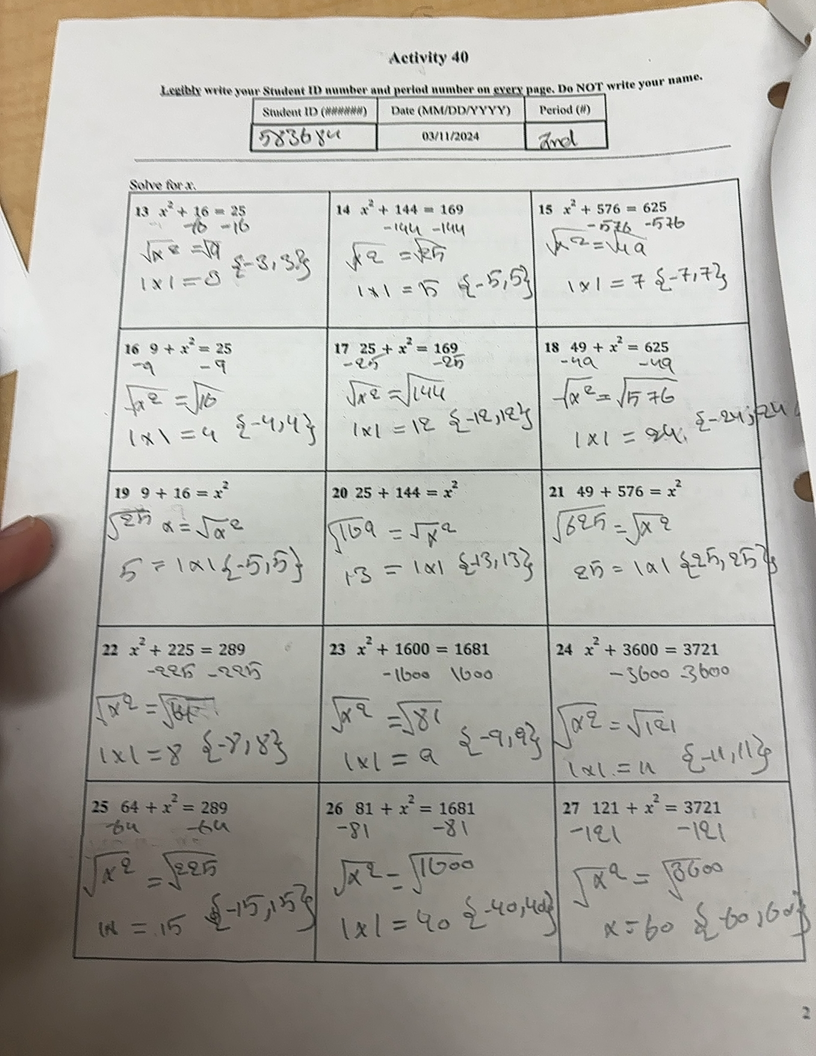 Activity 40
Legibly write your Student ID number and period number on every page. Do NOT write your name.
Student ID (######) Date (MM/DD/YYYY) Period (#)
583684 03/11/2024 2nd
Solve for x.
13 x² + 16 = 25
-16 -16
√x² = √9
|x| = 3 {-3,3}
14 x² + 144 = 169
-144 -144
√x² = √25
|x| = 5 {-5,5}
15 x² + 576 = 625
-576 -576
√x² = √49
|x| = 7 {-7,7}
16 9 + x² = 25
-9 -9
√x² = √16
|x| = 4 {-4,4}
17 25 + x² = 169
-25 -25
√x² = √144
|x| = 12 {-12,12}
18 49 + x² = 625
-49 -49
√x² = √576
|x| = 24. {-24,24
19 9 + 16 = x²
√25 x = √x²
5 = |x| {-5,5}
20 25 + 144 = x²
√169 = √x²
13 = |x| {-13,13}
21 49 + 576 = x²
√625 = √x²
25 = |x| {25,25}
22 x² + 225 = 289
-225 -225
√x² = √64
|x| = 8 {-8,8}
23 x² + 1600 = 1681
-1600 1600
√x² = √81
|x| = 9 {-9,9}
24 x² + 3600 = 3721
-3600 -3600
√x² = √121
|x| = 11 {-11,11}
25 64 + x² = 289
-64 -64
√x² = √225
|x = 15 {-15,15}
26 81 + x² = 1681
-81 -81
√x² = √1600
|x| = 40 {-40,40}
27 121 + x² = 3721
-121 -121
√x² = √3600
x = 60 {-60,60}
2